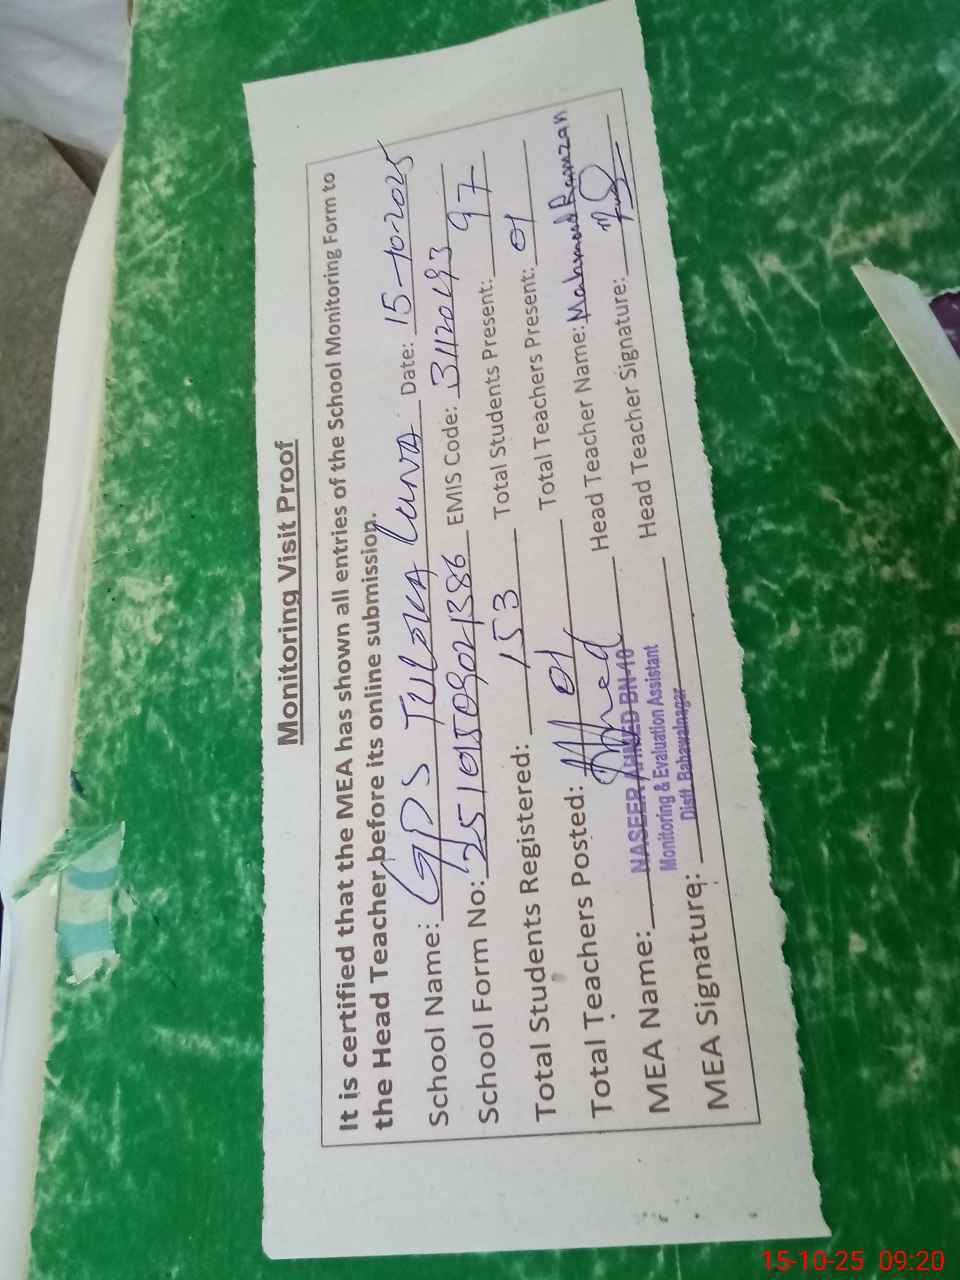 Monitoring Visit Proof
It is certified that the MEA has shown all entries of the School Monitoring Form to
the Head Teacher before its online submission.
School Name: GPS Date: 15-10-2025
School Form No: EMIS Code: 31120493
Total Students Registered: 153 Total Students Present: 97
Total Teachers Posted: 01 Total Teachers Present: 01
MEA Name: NASEER AHMED BN-10 Head Teacher Name: Mahmood Ramzan
Monitoring & Evaluation Assistant
MEA Signature: Distt Bahawalnagar Head Teacher Signature:
15-10-25 09:20